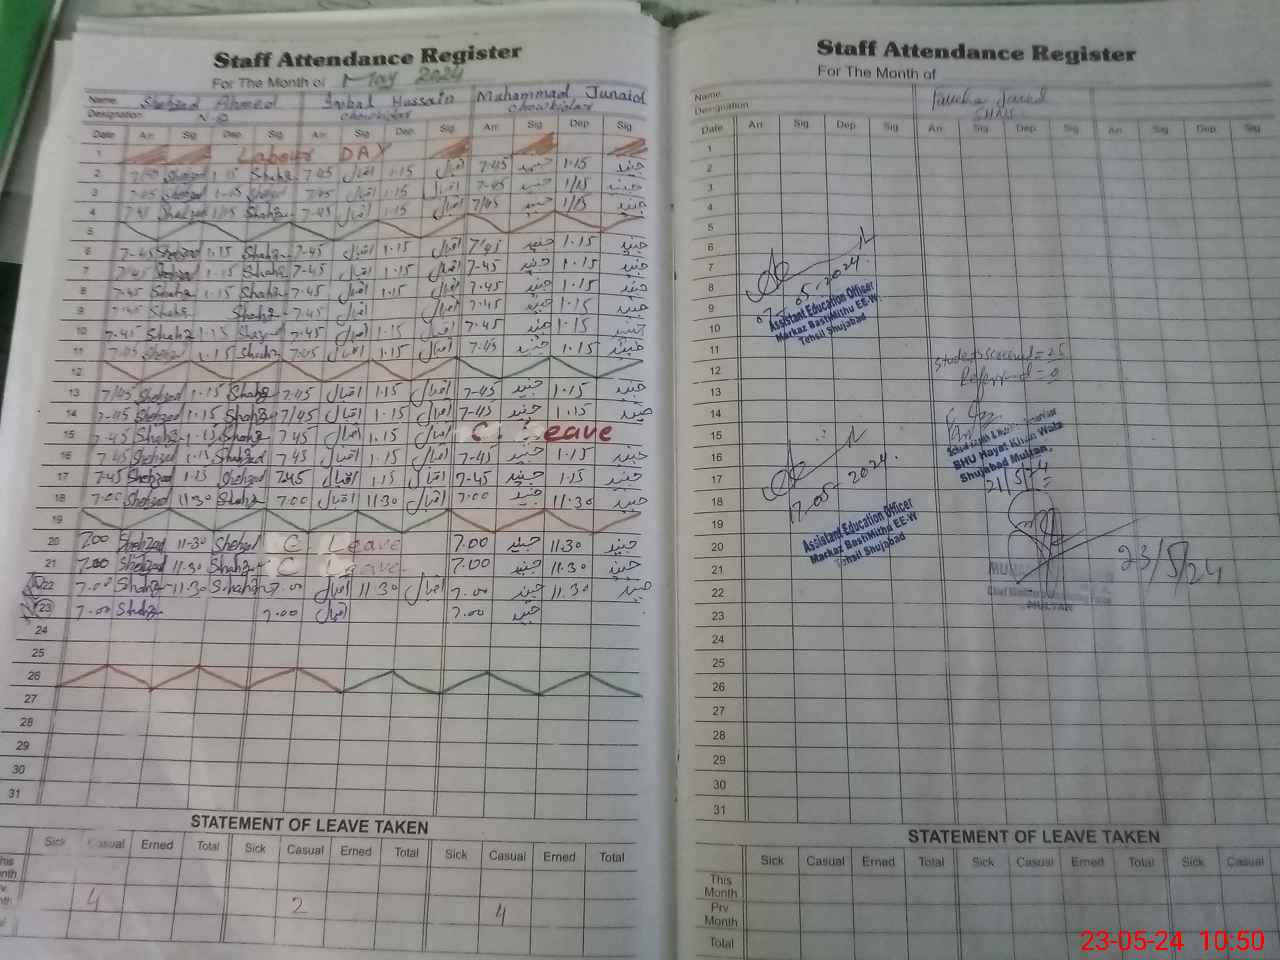 Staff Attendance Register
For The Month of May 2024
Name Shehzad Ahmed Iqbal Hussain Muhammad Junaid
Designation N.Q chowkidar chowkidar
Date Arr. Sig. Dep. Sig. Arr. Sig. Dep. Sig. Arr. Sig. Dep. Sig.
1 Labour DAY
2 7/50 Shehzad 1.15 Shahz 7.45 اقبال 1.15 اقبال 7.45 جنید 1.15 جنید
3 7.45 Shehzad 1.15 Shehzad 7/45 اقبال 1.15 اقبال 7-45 جنید 1/15 جنید
4 7.45 Shehzad 1/15 Shahz 7.45 اقبال 1.15 اقبال 7/45 جنید 1/15 جنید
5
6 7-45 Shehzad 1.15 Shahz 7-45 اقبال 1.15 اقبال 7/45 جنید 1.15 جنید
7 7/45 Shehzad 1.15 Shahz 7-45 اقبال 1.15 اقبال 7-45 جنید 1.15 جنید
8 7.45 Shahz 1.15 Shahz 7.45 اقبال 1.15 اقبال 7.45 جنید 1.15 جنید
9 7.45 Shahz Shahz 7.45 اقبال اقبال 7.45 جنید 1.15 جنید
10 7.45 Shahz 1.15 7.45 اقبال 1.15 اقبال 7.45 جنید 1.15 جنید
11 7.45 Shehzad 1.15 Shahz 7.45 اقبال 1.15 اقبال 7.45 جنید 1.15 جنید
12
13 7/45 Shehzad 1.15 Shahz 7.45 اقبال 1.15 اقبال 7-45 جنید 1.15 جنید
14 7-45 Shehzad 1.15 Shahz 7/45 اقبال 1.15 اقبال 7-45 جنید 1.15 جنید
15 7.45 Shahz 1.15 Shahz 7.45 اقبال 1.15 اقبال C. Leave
16 7.45 Shehzad 1.15 Shehzad 7.45 اقبال 1.15 اقبال 7-45 جنید 1.15 جنید
17 7.45 Shehzad 1.15 Shehzad 7.45 اقبال 1.15 اقبال 7-45 جنید 1.15 جنید
18 7.00 Shehzad 11.30 Shahz 7.00 اقبال 11.30 اقبال 7.00 جنید 11.30 جنید
19
20 7.00 Shehzad 11.30 Shehzad C Leave 7.00 جنید 11.30 جنید
21 7.00 Shehzad 11.30 Shahz C Leave 7.00 جنید 11.30 جنید
22 7.00 Shahz 11.30 Shahz 7.00 اقبال 11.30 اقبال 7.00 جنید 11.30 جنید
23 7.00 Shahz 7.00 اقبال 7.00 جنید
24
25
26
27
28
29
30
31
STATEMENT OF LEAVE TAKEN
Sick Casual Erned Total Sick Casual Erned Total Sick Casual Erned Total
4 2 4
Staff Attendance Register
For The Month of
Name
Designation
Date Arr. Sig. Dep. Sig. Arr. Sig. Dep. Sig. Arr. Sig. Dep. Sig.
1
2
3
4
5
6
7
8
9
10
11
12
13
14
15
16
17
18
19
20
21
22
23
24
25
26
27
28
29
30
31
07-05-2024.
Assistant Education Officer
Markaz BastiMithu EE-W
Tehsil Shujabad
17-05-2024.
Assistant Education Officer
Markaz BastiMithu EE-W
Tehsil Shujabad
Students screened = 25
Referred = 0
BHU Hayat Khan Wala
Shujabad Multan.
21/5/24
23/5/24
MULTAN
STATEMENT OF LEAVE TAKEN
Sick Casual Erned Total Sick Casual Erned Total Sick Casual
This Month
Prv Month
Total
23-05-24 10:50